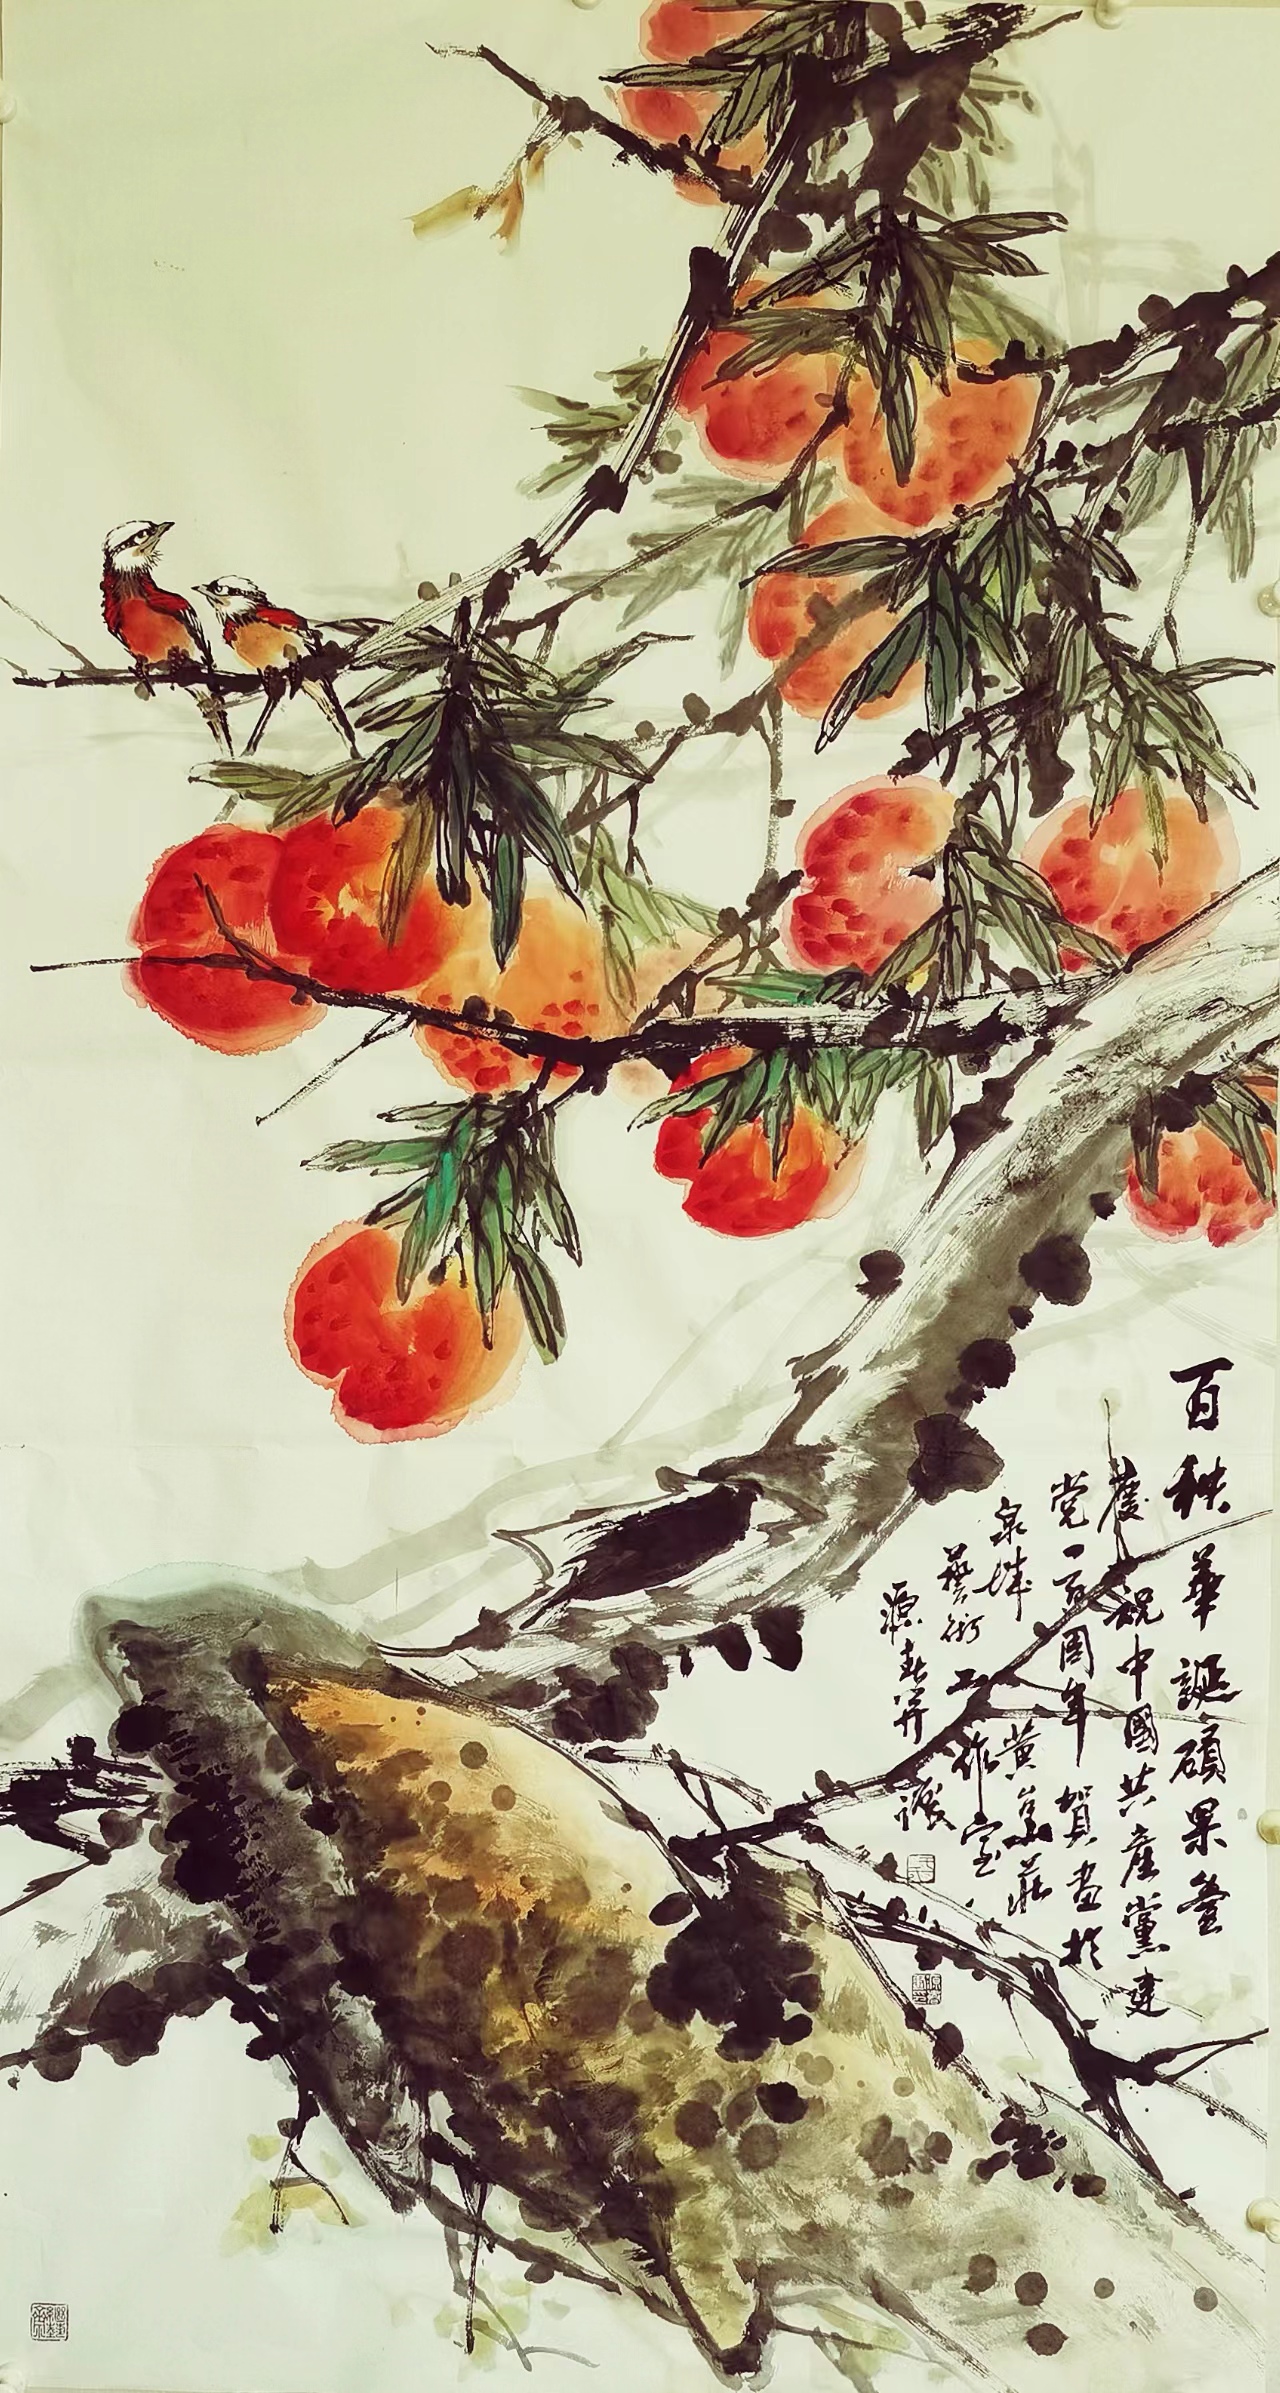 百秩華誕碩果叠
慶祝中國共產黨建
党一百周年 賀畫於
泉城 黄萬莊
藝術工作室
源春并識